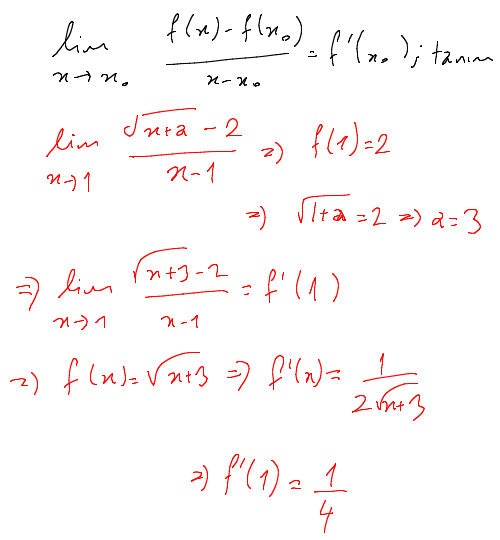 lim x→x₀ (f(x)-f(x₀))/(x-x₀) = f'(x₀); tanım
lim x→1 (√(x+a) - 2)/(x-1) ⇒ f(1)=2
⇒ √(1+a) = 2 ⇒ a=3
⇒ lim x→1 (√(x+3) - 2)/(x-1) = f'(1)
⇒ f(x)=√(x+3) ⇒ f'(x)= 1/(2√(x+3))
⇒ f'(1) = 1/4